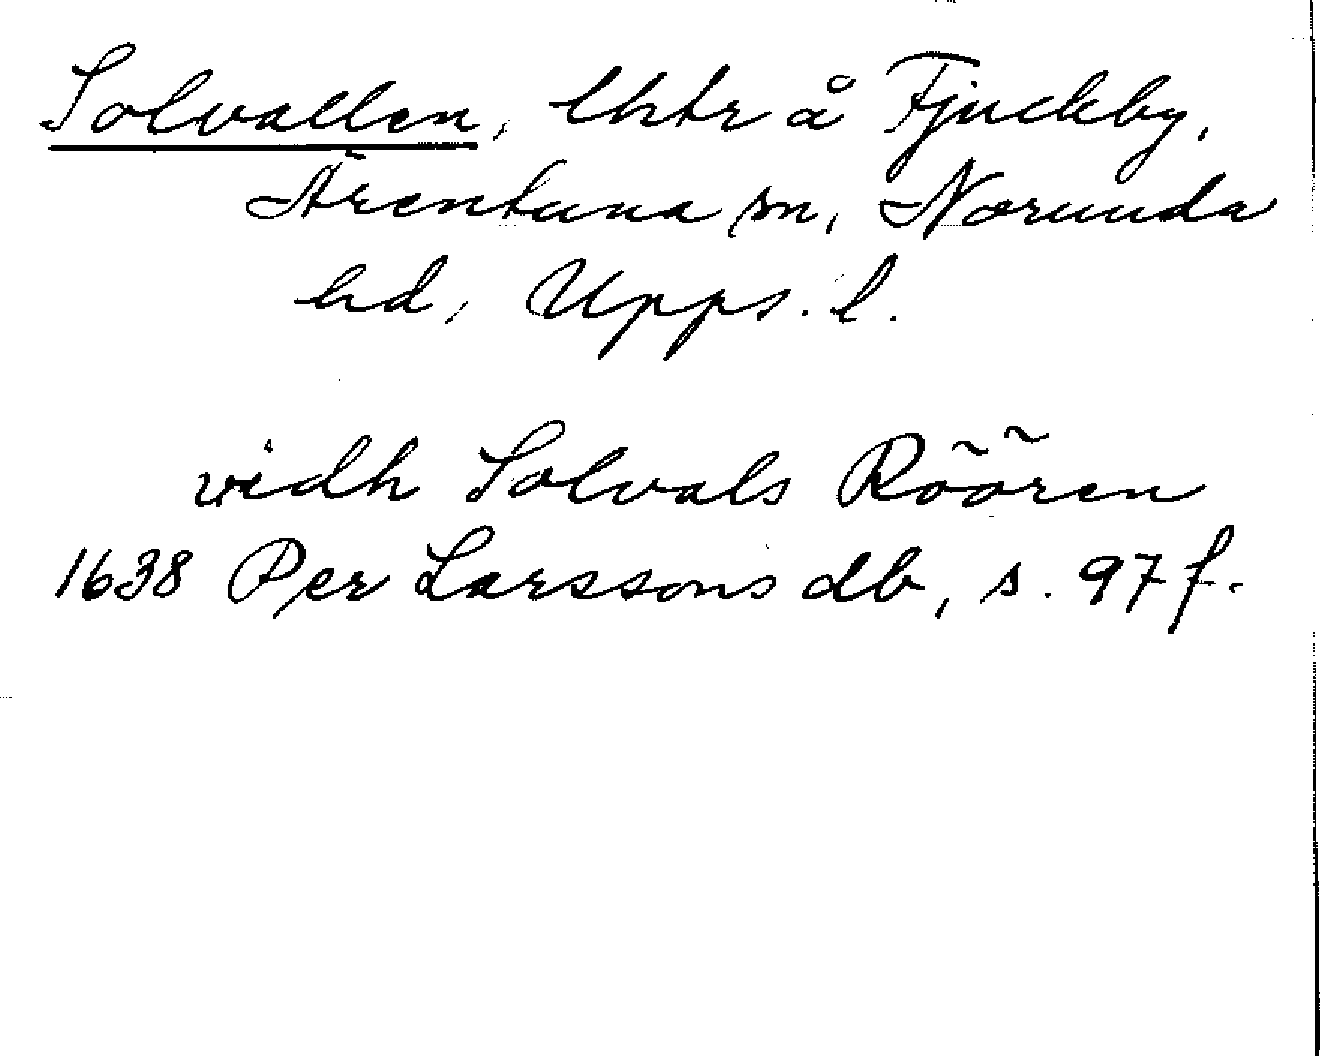 Solvallen, lhtr å Fjuckby,
Ärentuna sn, Norunda
hd, Upps. l.
vidh Solvals Röören
1638 Per Larssons db, s. 97 f.